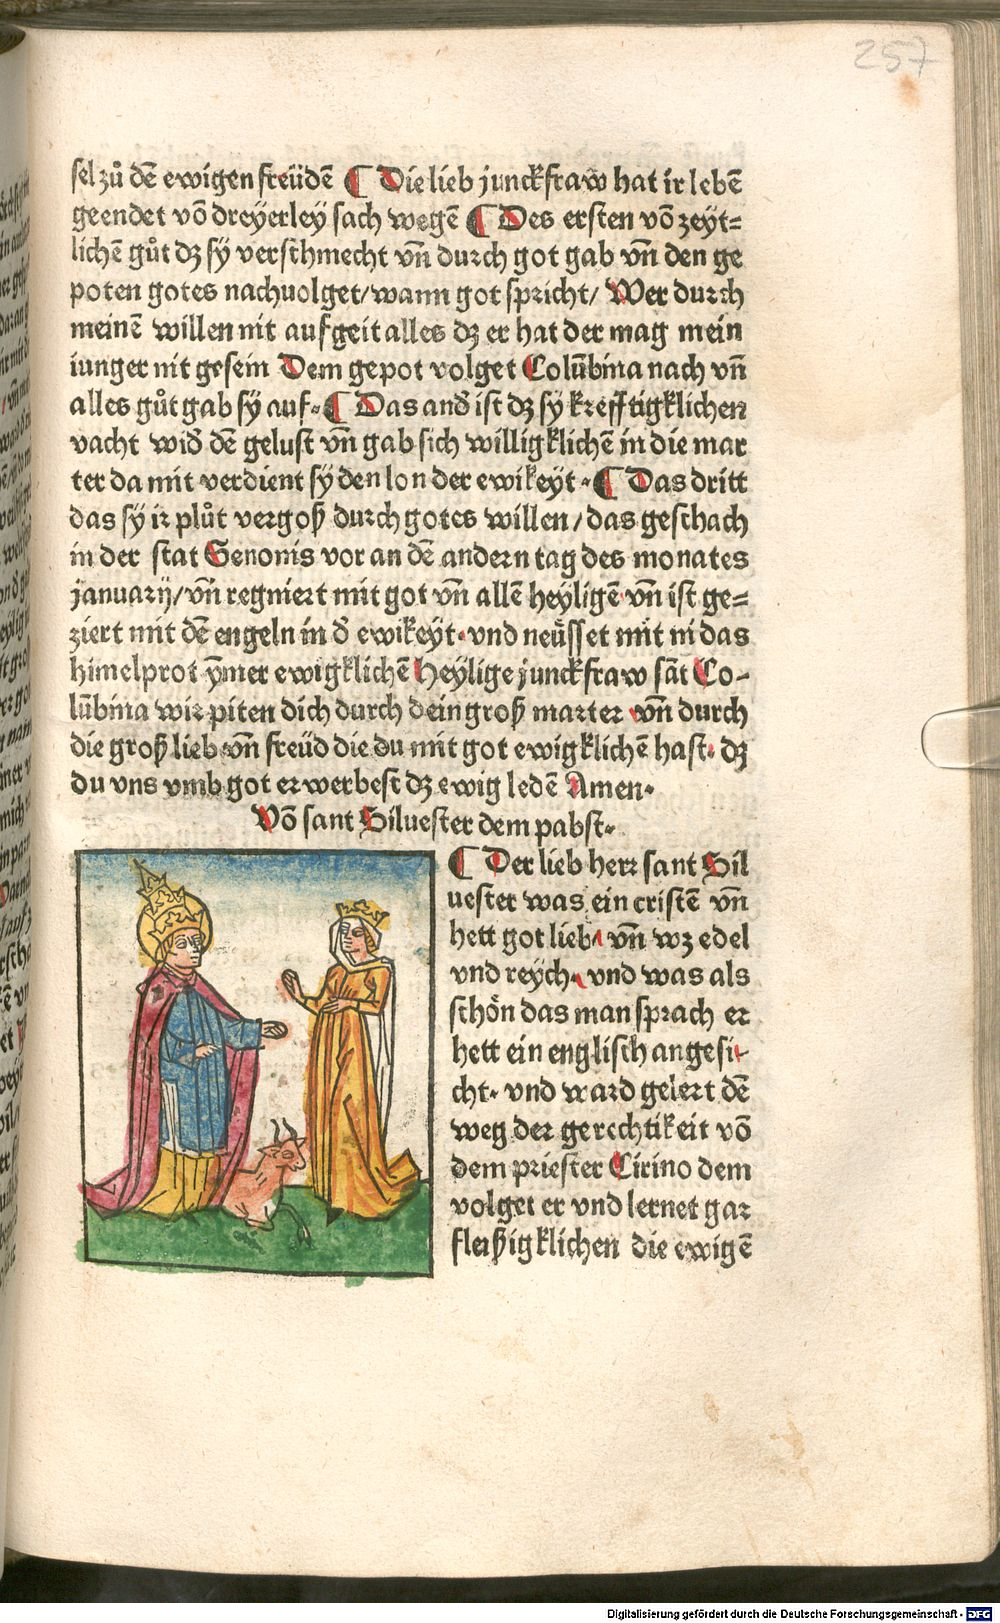 257
sel zů dē ewigen freüdē ¶ Die lieb junckfraw hat ir lebē
geendet vō dreyerley sach wegē ¶ Des ersten vō zeyt=
lichē gůt dz sy verschmecht vn̄ durch got gab vn̄ den ge
poten gotes nachuolget/ wann got spricht/ Wer durch
meinē willen nit auf geit alles dz er hat der mag mein
iunger nit gesein Dem gepot volget Colūbina nach vn̄
alles gůt gab sy auf. ¶ Das and̄ ist dz sy krefftigklichen
vacht wid̄ dē gelust vn̄ gab sich willigklichē in die mar
ter da mit verdient sy den lon der ewikeyt. ¶ Das dritt
das sy ir plůt vergoß durch gotes willen/ das geschach
in der stat Senonis vor an dē andern tag des monates
january/ vn̄ regniert mit got vn̄ allē heyligē vn̄ ist ge=
ziert mit dē engeln in d̄ ewikeyt. vnd neüsset mit in das
himelprot ẏmer ewigklichē Heylige junckfraw sāt Co-
lūbina wir piten dich durch dein groß marter vn̄ durch
die groß lieb vn̄ freüd die du mit got ewigklichē hast. dz
du vns vmb got erwerbest dz ewig ledē Amen.
Vō sant Siluester dem pabst.
¶ Der lieb herr sant Sil
uester was ein cristē vn̄
hett got lieb. vn̄ wz edel
vnd reych. vnd was als
schön das man sprach er
hett ein englisch angesi-
cht. vnd ward gelert dē
weg der gerechtikeit vō
dem priester Cirino dem
volget er vnd lernet gar
fleißigklichen die ewigē
Digitalisierung gefördert durch die Deutsche Forschungsgemeinschaft - DFG